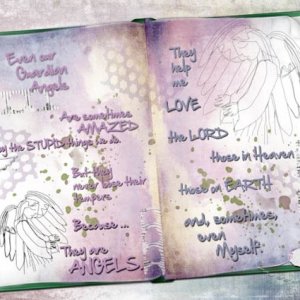 Even our
Guardian
Angels
Are sometimes
AMAZED
by the STUPID things we do.
But they
never lose their
tempers
Because ...
They are
ANGELS.
They
help
me
LOVE
the LORD
those in Heaven
those on EARTH
and, sometimes,
even
Myself.